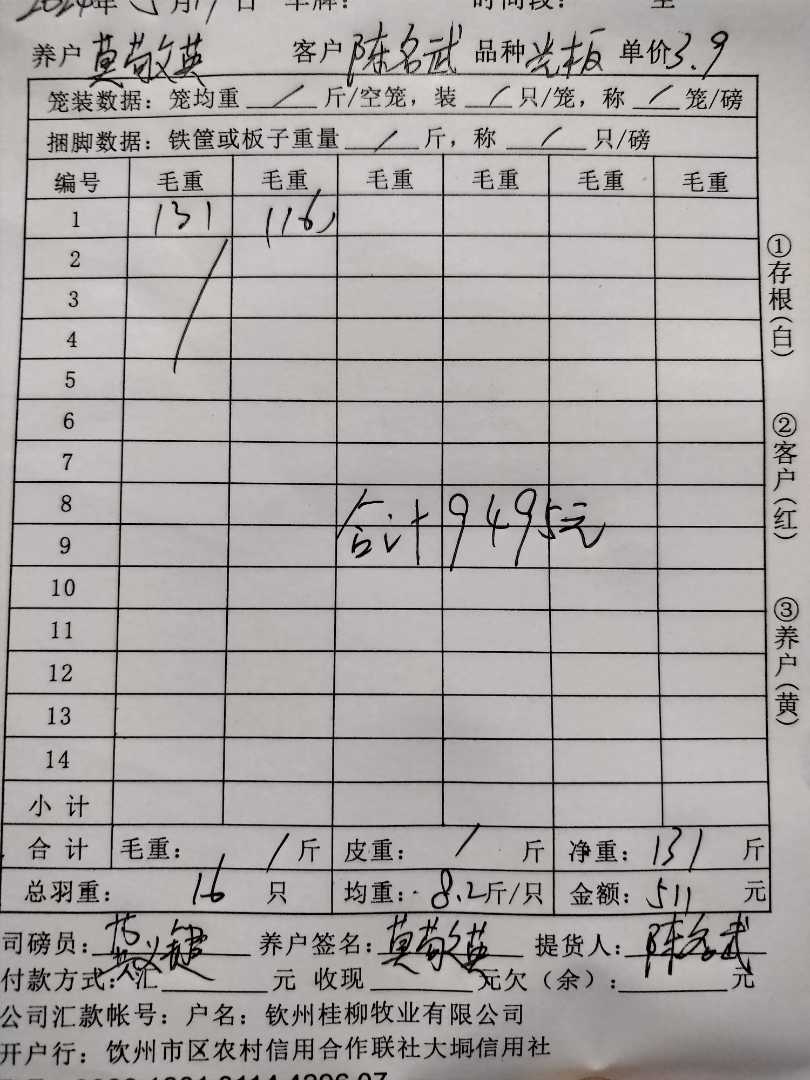 2024年5月19日 车牌： 时间段： 至
养户 莫敬英 客户 陈名武 品种 光板 单价3.9
笼装数据：笼均重 / 斤/空笼，装 / 只/笼，称 / 笼/磅
捆脚数据：铁筐或板子重量 / 斤，称 / 只/磅
编号 毛重 毛重 毛重 毛重 毛重 毛重
1 131 (16)
2
3
4
5
6
7
8
合计9495元
9
10
11
12
13
14
小 计
合 计 毛重： / 斤 皮重： / 斤 净重：131 斤
总羽重： 16 只 均重：8.2斤/只 金额：511 元
司磅员： 养户签名：莫敬英 提货人：陈名武
付款方式：汇 元 收现 元欠（余）： 元
公司汇款帐号：户名：钦州桂柳牧业有限公司
开户行：饮州市区农村信用合作联社大垌信用社
①存根（白）
②客户（红）
③养户（黄）